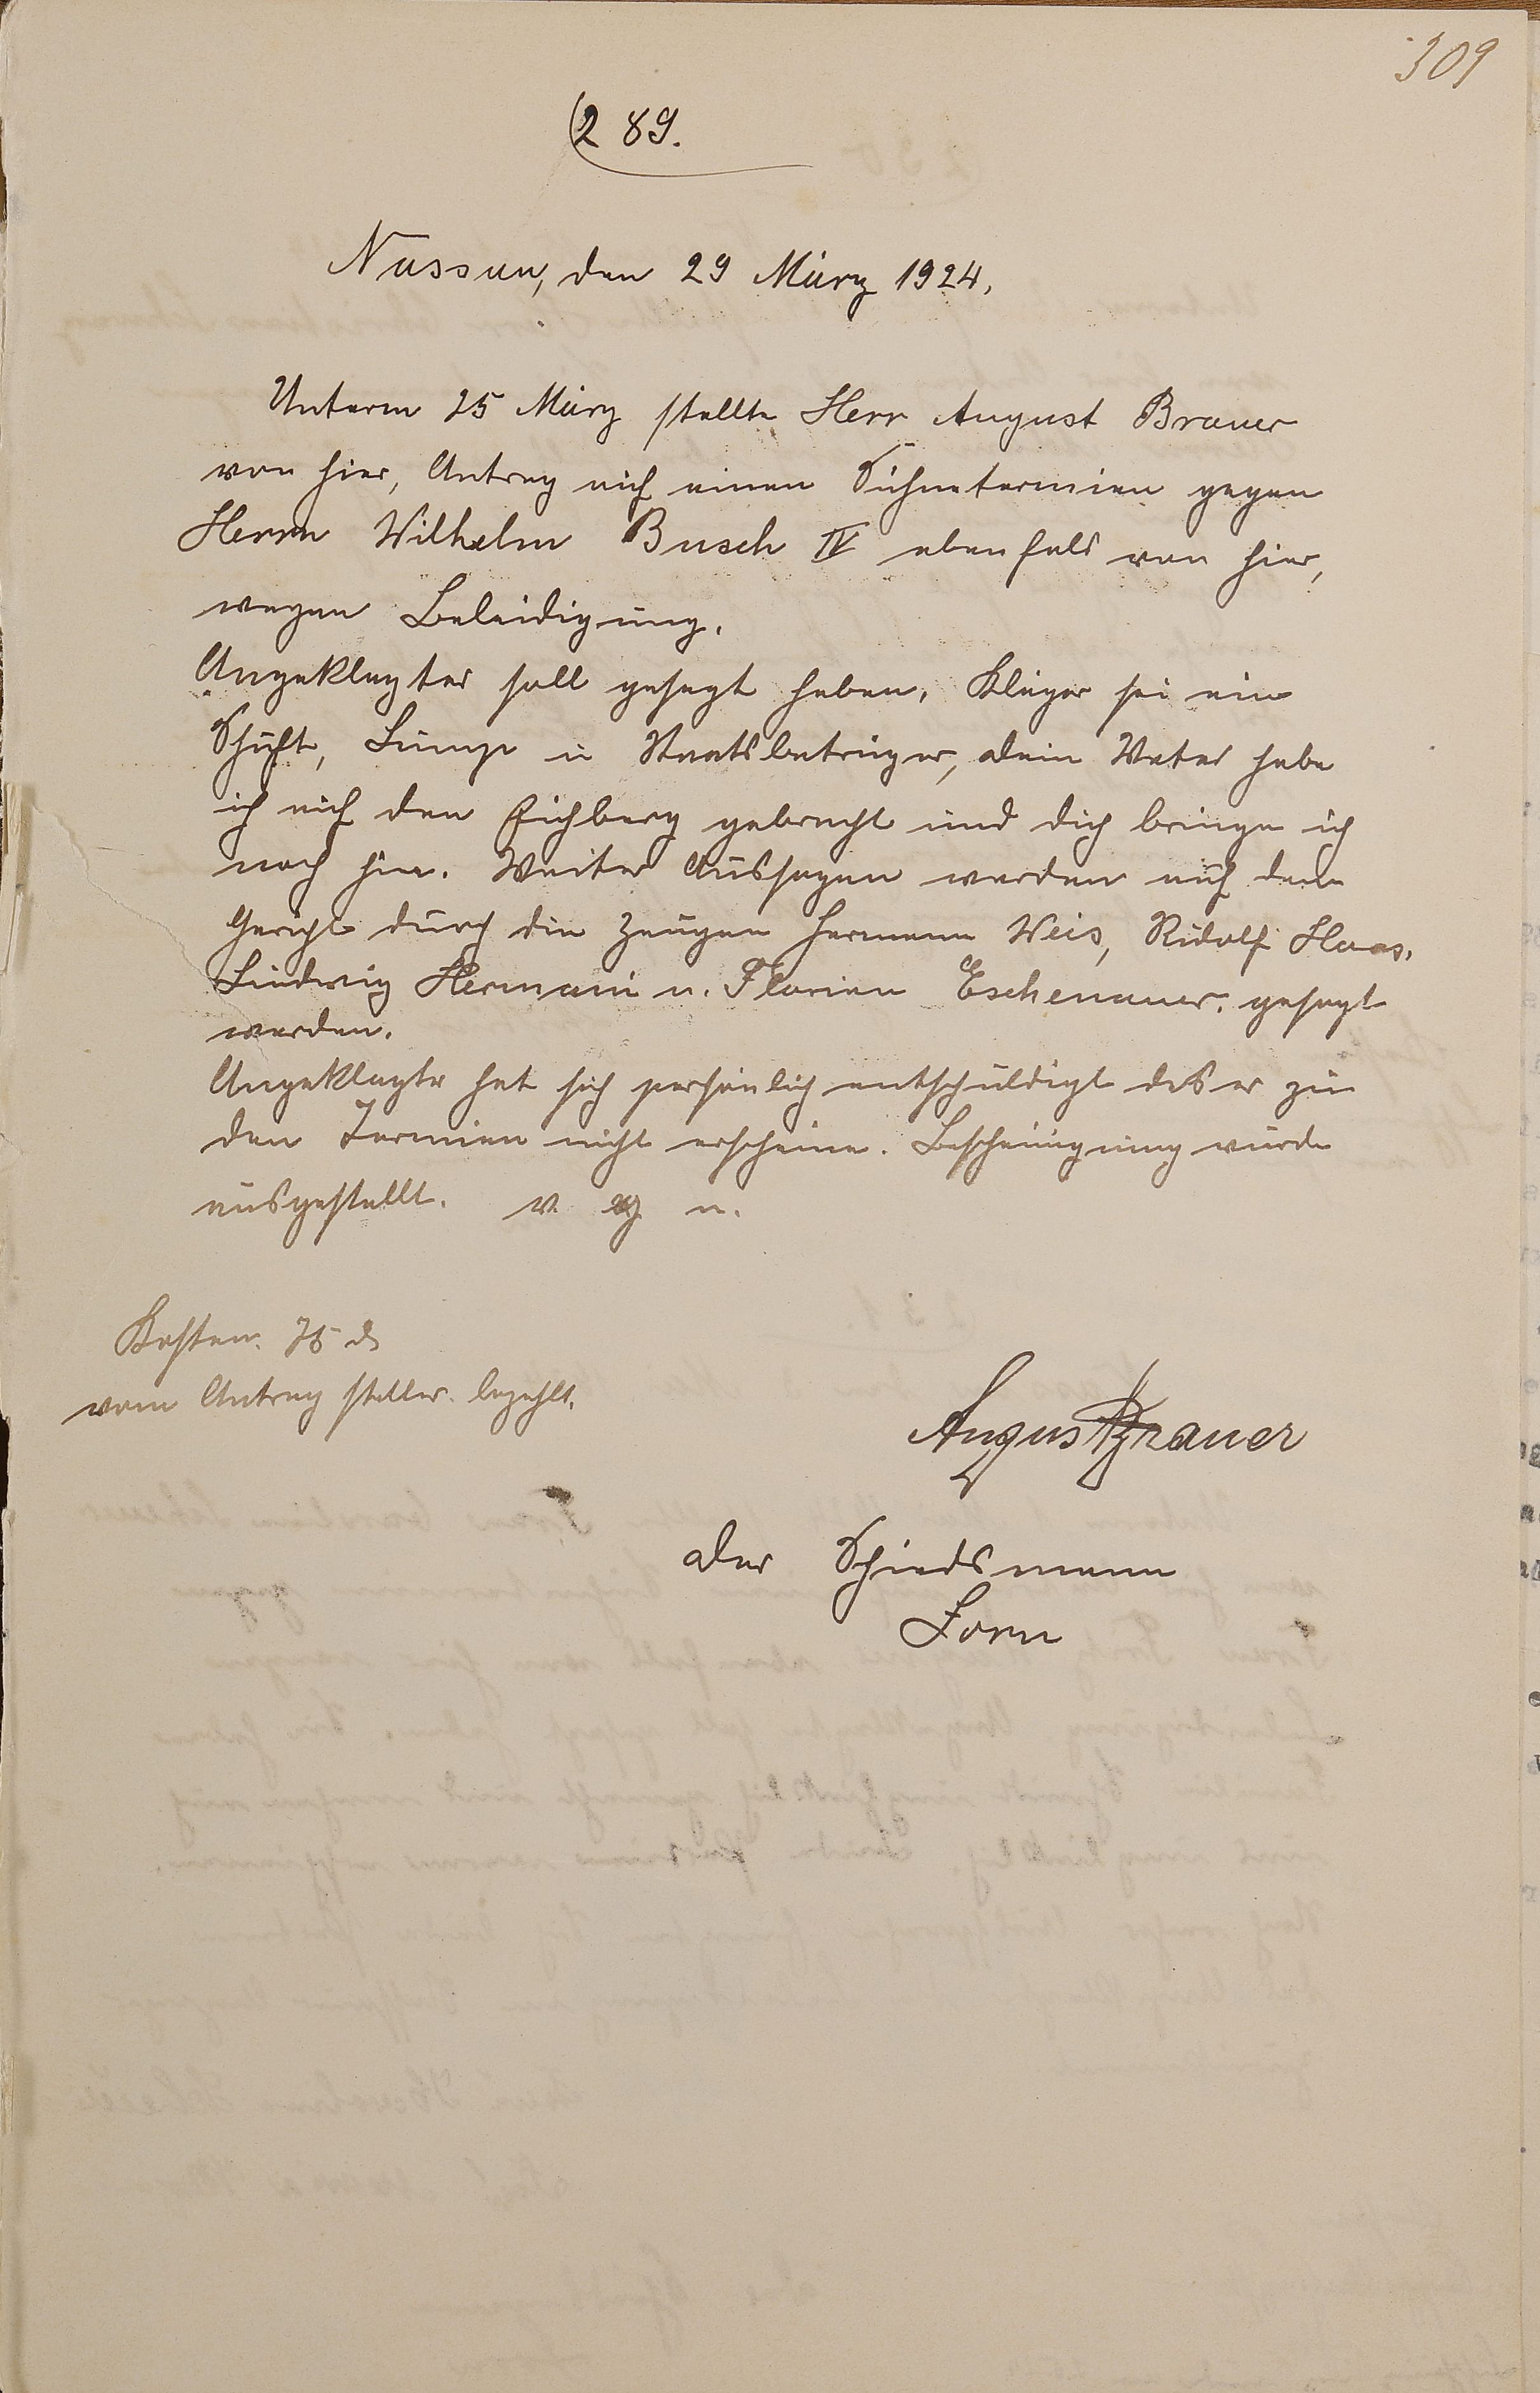 309
289.
Nassau, den 29 März 1924.
Unterm 25 März stellte Herr August Brauer
von hier, Antrag auf einen Sühnetermien gegen
Herrn Wilhelm Busch IV ebenfals von hier,
wegen Beleidigung.
Angeklagter soll gesagt haben, Kläger sei ein
Schuft, Lump u Staatsbetrüger, dein Vater habe
ich auf den Eichberg gebracht und dich bringe ich
noch hin. Weiter Aussagen werden auf dem
Gericht durch die Zeugen Hermann Weis, Rudolf Haas,
Ludwig Hermani u. Florian Eschenauer. gesagt
werden.
Angeklagte hat sich persönlich entschuldigt das er zu
den Termien nicht erscheine. Bescheinigung wurde
ausgestellt. v. g. u.
Kosten. 75 d
vom Antrag steller. bezahlt.
August Brauer
der Schiedsmann
Zorn